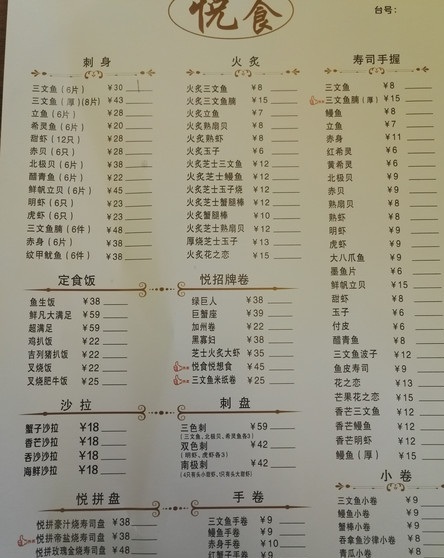 悦食
台号：
刺身
三文鱼（6片） ¥30
三文鱼（厚）(8片) ¥43
立鱼（6片） ¥28
希灵鱼（6片） ¥20
甜虾（12只） ¥28
赤贝（6只） ¥28
北极贝（6片） ¥38
醋青鱼（6片） ¥22
鲜帆立贝（6片） ¥45
明虾（6只） ¥23
虎虾（6只） ¥23
三文鱼腩（6件） ¥48
赤身（6片） ¥38
纹甲鱿鱼（6件） ¥48
火炙
火炙三文鱼 ¥8
火炙三文鱼腩 ¥15
火炙立鱼 ¥7
火炙熟扇贝 ¥8
火炙熟虾 ¥8
火炙玉子 ¥6
火炙芝士三文鱼 ¥12
火炙芝士鳗鱼 ¥12
火炙芝士玉子烧 ¥12
火炙芝士蟹腿棒 ¥12
火炙蟹腿棒 ¥10
火炙芝士熟扇贝 ¥12
厚烧芝士玉子 ¥13
火炙花之恋 ¥15
寿司手握
三文鱼 ¥8
三文鱼腩(厚) ¥15
鳗鱼 ¥8
立鱼 ¥7
赤身 ¥11
红希灵 ¥8
黄希灵 ¥6
北极贝 ¥9
赤贝 ¥9
熟扇贝 ¥8
熟虾 ¥8
明虾 ¥9
虎虾 ¥9
大八爪鱼 ¥9
墨鱼片 ¥6
鲜帆立贝 ¥15
甜虾 ¥8
玉子 ¥6
付皮 ¥6
醋青鱼 ¥8
三文鱼波子 ¥12
鱼皮寿司 ¥9
花之恋 ¥13
芒果花之恋 ¥15
香芒三文鱼 ¥12
香芒鳗鱼 ¥12
香芒明虾 ¥12
鳗鱼（厚） ¥15
定食饭
鱼生饭 ¥38
鲜凡大满足 ¥59
超满足 ¥59
鸡扒饭 ¥22
吉列猪扒饭 ¥22
叉烧饭 ¥22
叉烧肥牛饭 ¥25
悦招牌卷
绿巨人 ¥38
巨蟹座 ¥39
加州卷 ¥22
黑寡妇 ¥38
芝士火炙大虾 ¥35
悦食悦想食 ¥45
三文鱼米纸卷 ¥25
沙拉
蟹子沙拉 ¥18
香芒沙拉 ¥18
吞沙沙拉 ¥18
海鲜沙拉 ¥18
刺盘
三色刺 ¥59
(三文鱼、北极贝、希灵鱼各3)
双色刺 ¥42
(明虾、虎虾各3)
南极刺 ¥42
悦拼盘
悦拼豪汁烧寿司盘 ¥38
悦拼帝盐烧寿司盘 ¥38
悦拼玫瑰金烧寿司盘 ¥48
手卷
三文鱼手卷 ¥9
鳗鱼手卷 ¥9
赤身手卷 ¥10
红蟹子手卷 ¥9
小卷
三文鱼小卷
鳗鱼小卷
蟹棒小卷
吞拿鱼沙律小卷
青瓜小卷